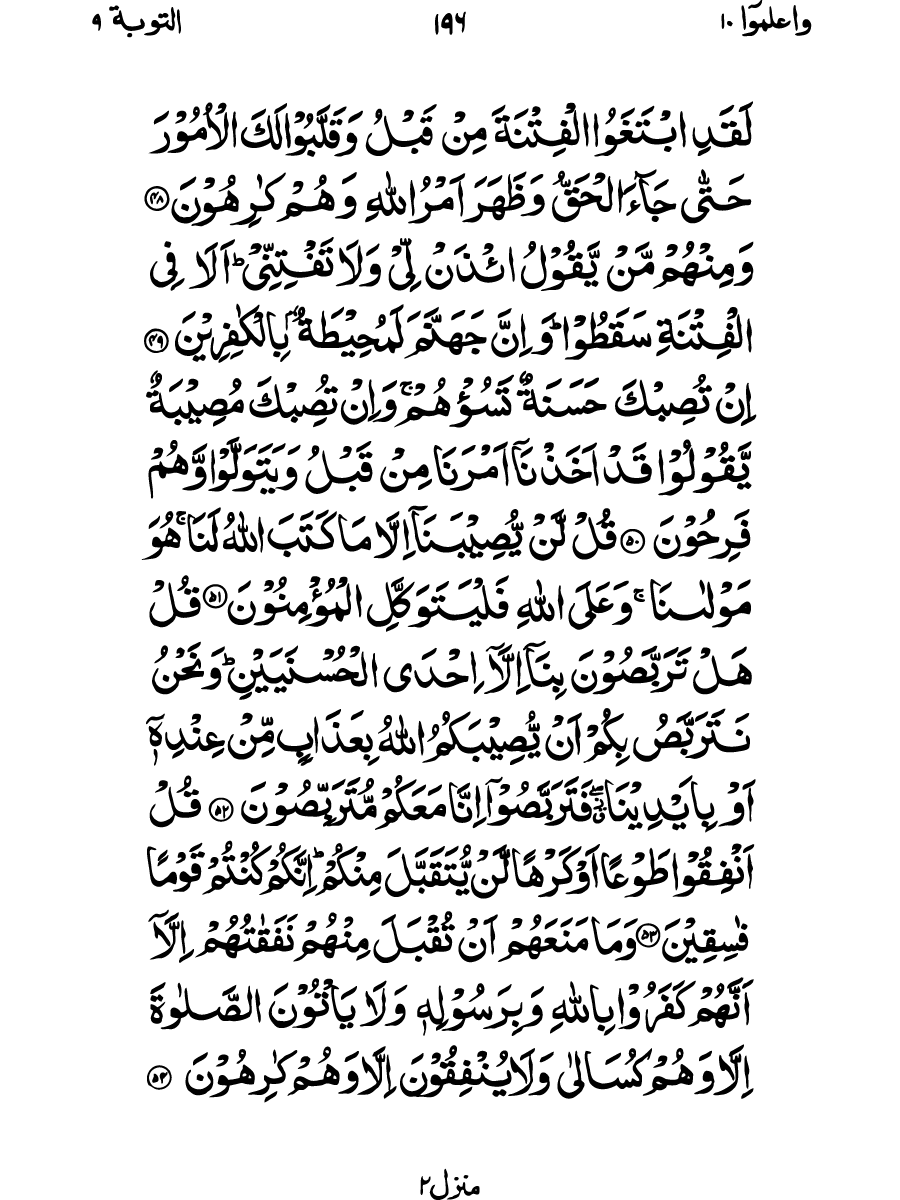 واعلموٓا ١٠ ١٩٦ التوبة ٩
لَقَدِ ابْتَغَوُا الْفِتْنَةَ مِنْ قَبْلُ وَقَلَّبُوْا لَكَ الْاُمُوْرَ
حَتّٰى جَآءَ الْحَقُّ وَظَهَرَ اَمْرُ اللّٰهِ وَهُمْ كٰرِهُوْنَ ﴿۴۸﴾
وَمِنْهُمْ مَّنْ يَّقُوْلُ ائْذَنْ لِّيْ وَلَا تَفْتِنِّيْ ؕ اَلَا فِى
الْفِتْنَةِ سَقَطُوْا ؕ وَ اِنَّ جَهَنَّمَ لَمُحِيْطَةٌۢ بِالْكٰفِرِيْنَ ﴿۴۹﴾
اِنْ تُصِبْكَ حَسَنَةٌ تَسُؤْهُمْ ۚ وَاِنْ تُصِبْكَ مُصِيْبَةٌ
يَّقُوْلُوْا قَدْ اَخَذْنَاۤ اَمْرَنَا مِنْ قَبْلُ وَيَتَوَلَّوْا وَّهُمْ
فَرِحُوْنَ ﴿۵۰﴾ قُلْ لَّنْ يُّصِيْبَنَاۤ اِلَّا مَا كَتَبَ اللّٰهُ لَنَا ۚ هُوَ
مَوْلٰىنَا ۚ وَعَلَى اللّٰهِ فَلْيَتَوَكَّلِ الْمُؤْمِنُوْنَ ﴿۵۱﴾ قُلْ
هَلْ تَرَبَّصُوْنَ بِنَاۤ اِلَّاۤ اِحْدَى الْحُسْنَيَيْنِ ؕ وَنَحْنُ
نَتَرَبَّصُ بِكُمْ اَنْ يُّصِيْبَكُمُ اللّٰهُ بِعَذَابٍ مِّنْ عِنْدِهٖۤ
اَوْ بِاَيْدِيْنَا ۖ فَتَرَبَّصُوْۤا اِنَّا مَعَكُمْ مُّتَرَبِّصُوْنَ ﴿۵۲﴾ قُلْ
اَنْفِقُوْا طَوْعًا اَوْ كَرْهًا لَّنْ يُّتَقَبَّلَ مِنْكُمْ ؕ اِنَّكُمْ كُنْتُمْ قَوْمًا
فٰسِقِيْنَ ﴿۵۳﴾ وَمَا مَنَعَهُمْ اَنْ تُقْبَلَ مِنْهُمْ نَفَقٰتُهُمْ اِلَّاۤ
اَنَّهُمْ كَفَرُوْا بِاللّٰهِ وَبِرَسُوْلِهٖ وَلَا يَاْتُوْنَ الصَّلٰوةَ
اِلَّا وَهُمْ كُسَالٰى وَلَا يُنْفِقُوْنَ اِلَّا وَهُمْ كٰرِهُوْنَ ﴿۵۴﴾
منزل ٢